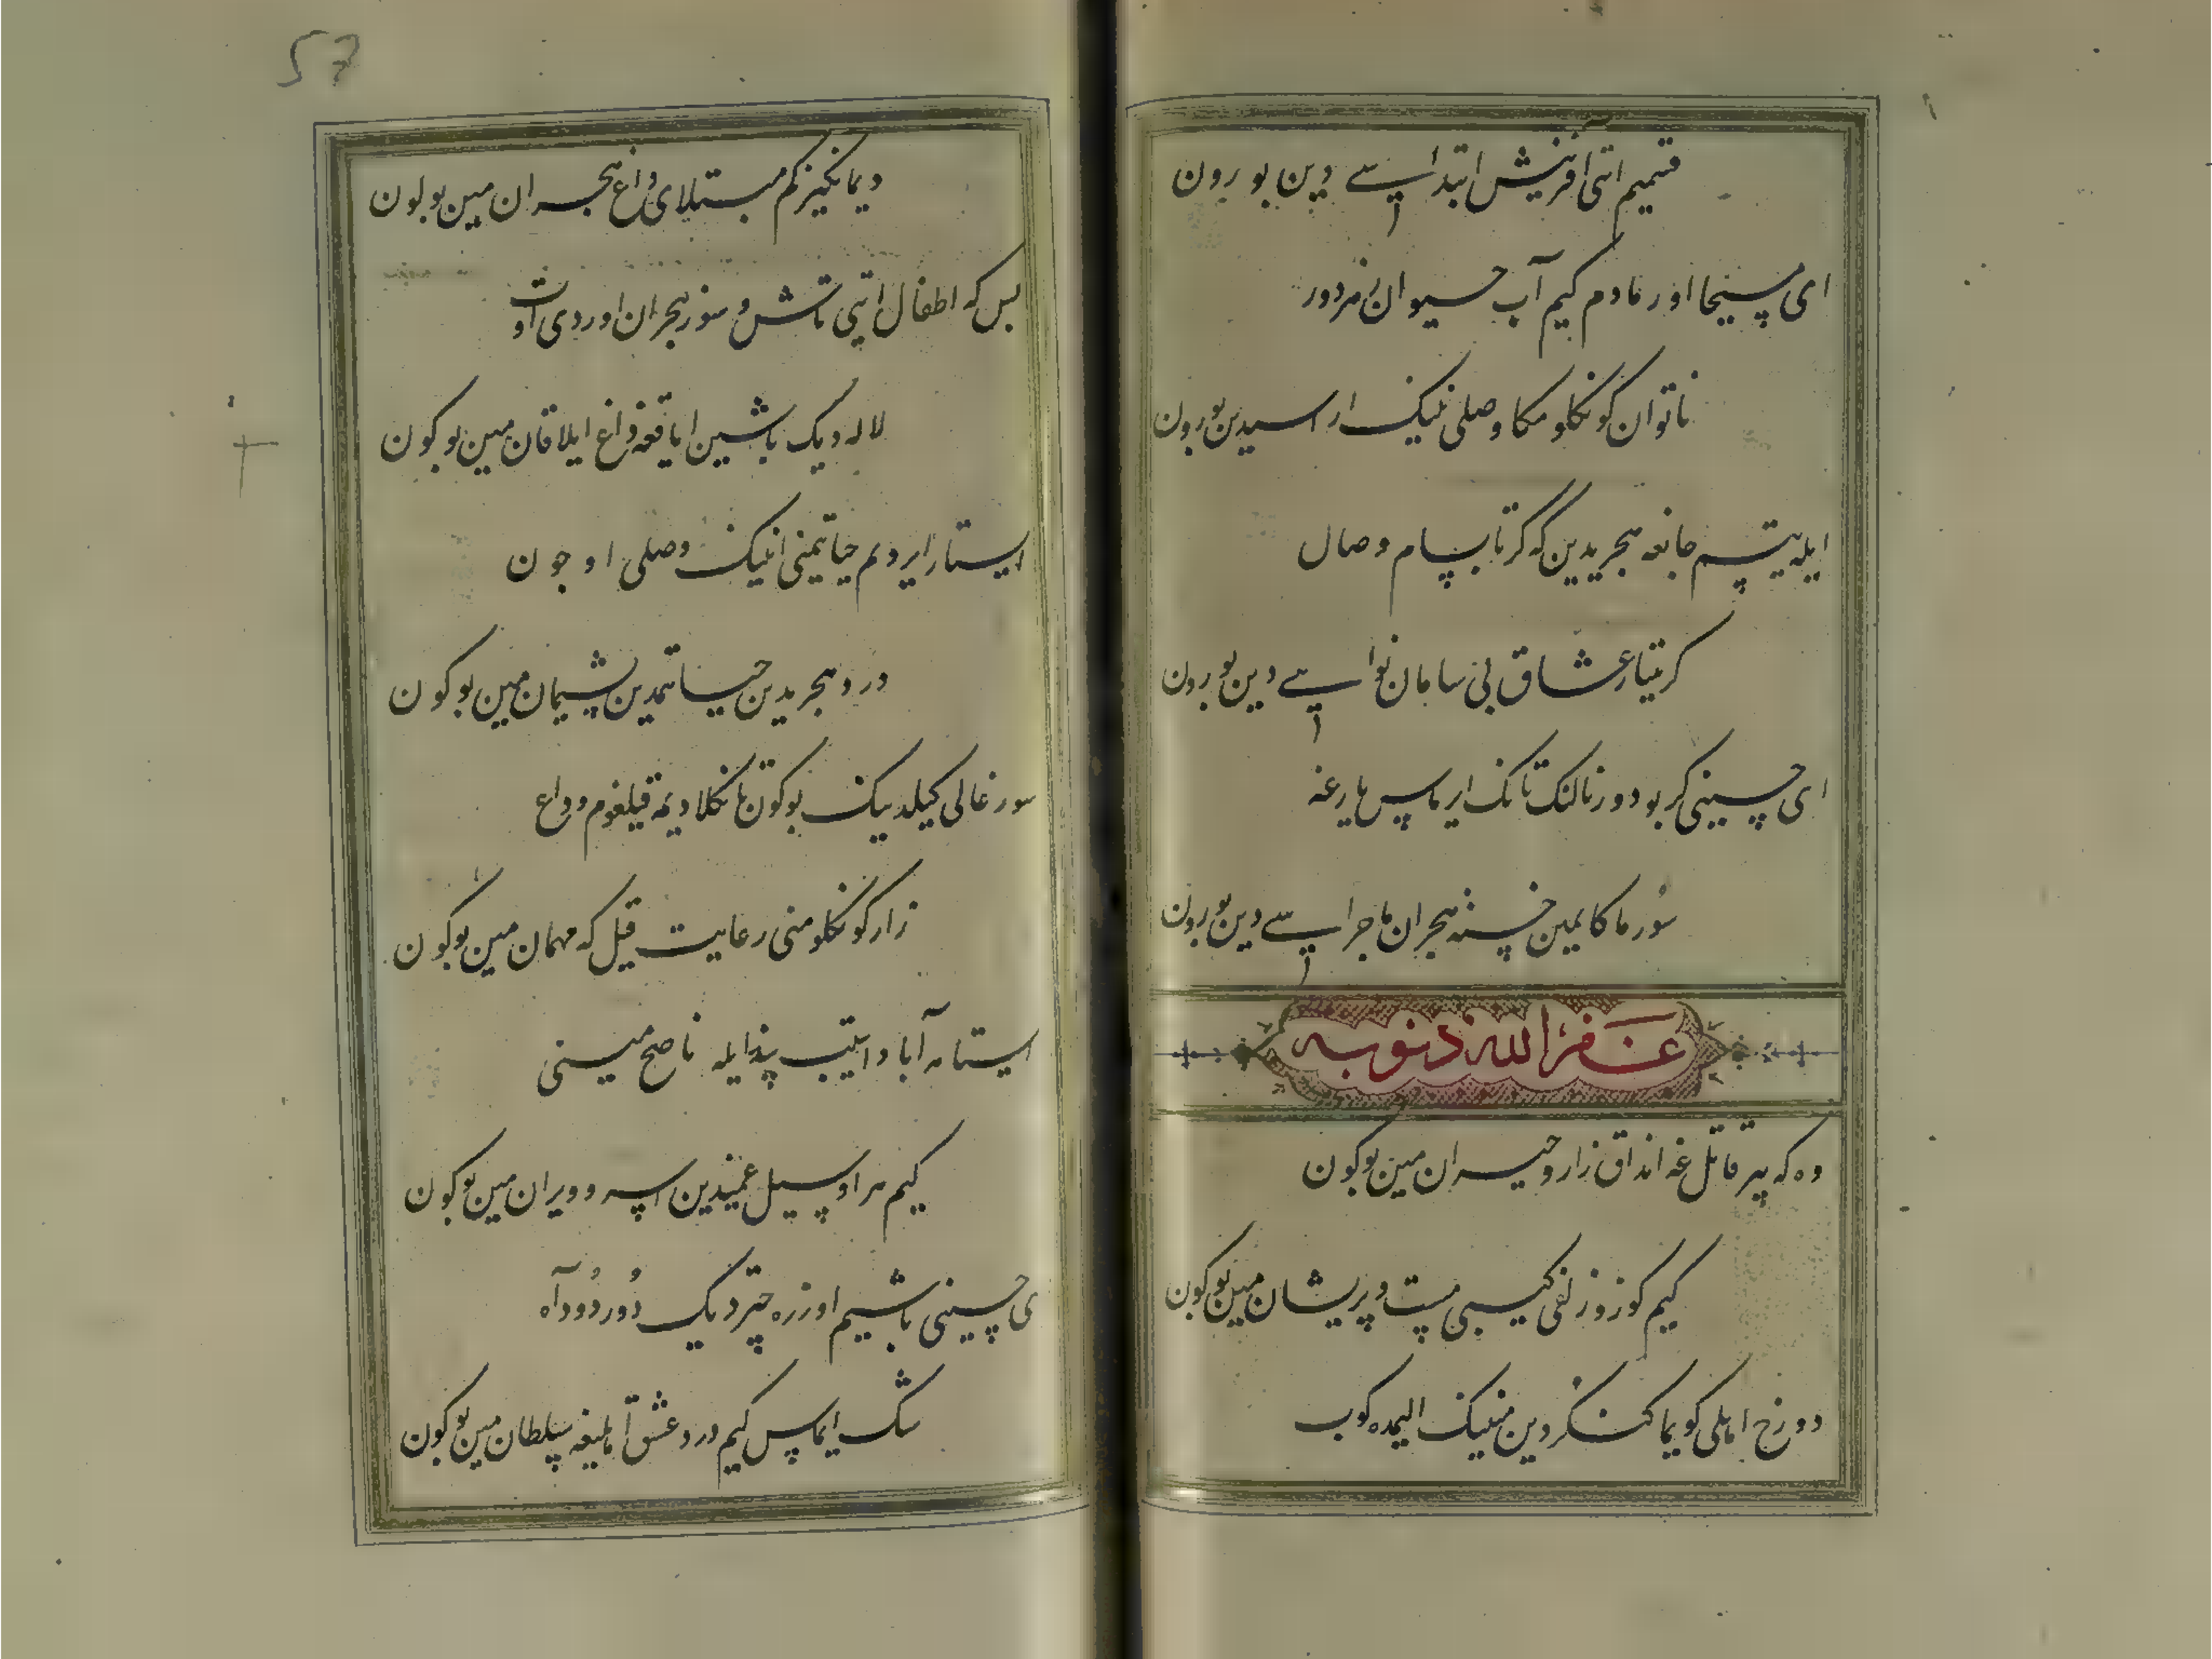 قتمیم ایتی آفرینش ابتداسی دین بورون
ای مسیحا اورمادم کیم آب حیوان نمردور
ناتوان کونکلومکا وصلی نینک اراسیدین بورون
ایله یتیم جانغه هجریدین که گر تاپسام وصال
کریتار عشاق بی سامان نواسی دین بورون
ای حسینی کر بو دورنالنک تانک ایرماس یارغه
سورماکایمین خسته هجران ماجراسی دین بورون
غفر الله ذنوبه
وه که بیر قاتل غه انداق زار و حیران مین بوکون
کیم کوز و زلفی کیبی مست و پریشان مین بوکون
دوزخ اهلی کویماکنی کردین مینینک الیمده کوب
دیمانکیز کم مبتلای داغ هجران مین بوکون
بس که اطفال ایتی تاش و سوز هجران اوردی اوت
لاله دیک باشین ایاقغه داغ ایلا قان مین بوکون
ایستار ایردیم حیاتیمنی انینک وصلی اوجون
درد هجریدین حیاتیمدین پشیمان مین بوکون
سورغالی کیلدینک بوکون تانکلا دیمه قیلغوم وداع
زار کونکلومنی رعایت قیل که مهمان مین بوکون
ایستامه آباد ایتیب پند ایله ناصح مینی
کیم مر او سیل غمیدین اسرو ویران مین بوکون
ای حسینی باشیم اوزره چتر دیک دور دود آه
شک ایماس کیم درد عشق آهلیغه سلطان مین بوکون
57